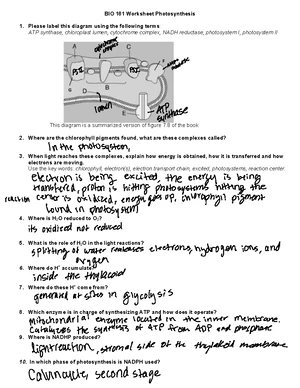 BIO 181 Worksheet Photosynthesis
1. Please label this diagram using the following terms
ATP synthase, chloroplast lumen, cytochrome complex, NADH reductase, photosystem I, photosystem II
cytochrome complex
A
C
PSII
PSI
B
D
lumen
E
ATP synthase
This diagram is a summarized version of figure 7.9 of the book
2. Where are the chlorophyll pigments found, what are these complexes called?
In the photosystem,
3. When light reaches these complexes, explain how energy is obtained, how it is transferred and how
electrons are moving.
Use the key words: chlorophyll, electron(s), electron transport chain, excited, photosystems, reaction center
electron is being excited, the energy is being
transferred, proton is hitting photosystems hitting the
reaction center is oxidized, energy goes up, chlorophyll pigment
found in photosystem
4. Where is H₂O reduced to O₂?
its oxidized not reduced
5. What is the role of H₂O in the light reactions?
splitting of water releases electrons, hydrogen ions, and
oxygen
6. Where do H⁺ accumulate?
inside the thylakoid
7. Where do these H⁺ come from?
generated at sites in glycolysis
8. Which enzyme is in charge of synthesizing ATP and how does it operate?
mitochondrial enzyme located in the inner membrane.
Catalyzes the synthesis of ATP from ADP and phosphate
9. Where is NADPH produced?
light reaction, stromal side of the thylakoid membrane
10. In which phase of photosynthesis is NADPH used?
Calvin cycle, second stage